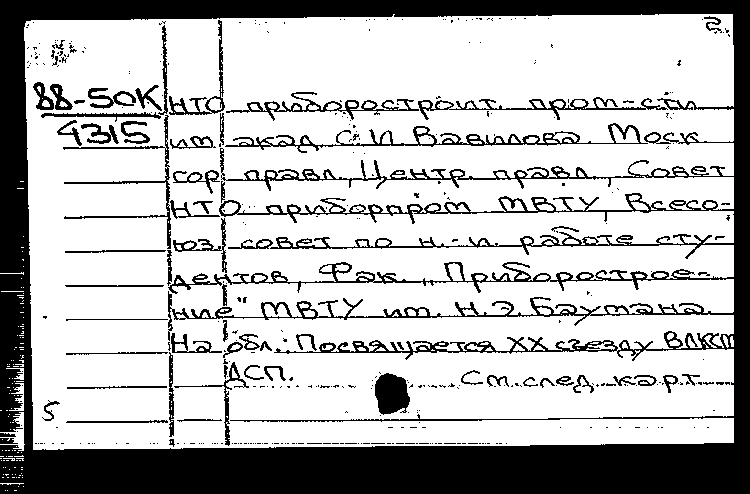 2.
88-50К НТО приборостроит. пром-сти
4315 им. акад. С.И. Вавилова. Моск.
гор. правл., Центр. правл., Совет
НТО приборпром МВТУ, Всесо-
юз. совет по н.-и. работе сту-
дентов, Фак. „Приборострое-
ние" МВТУ им. Н.Э. Баумана.
На обл.: Посвящается XX съезду ВЛКСМ
ДСП. См. след. карт.
5